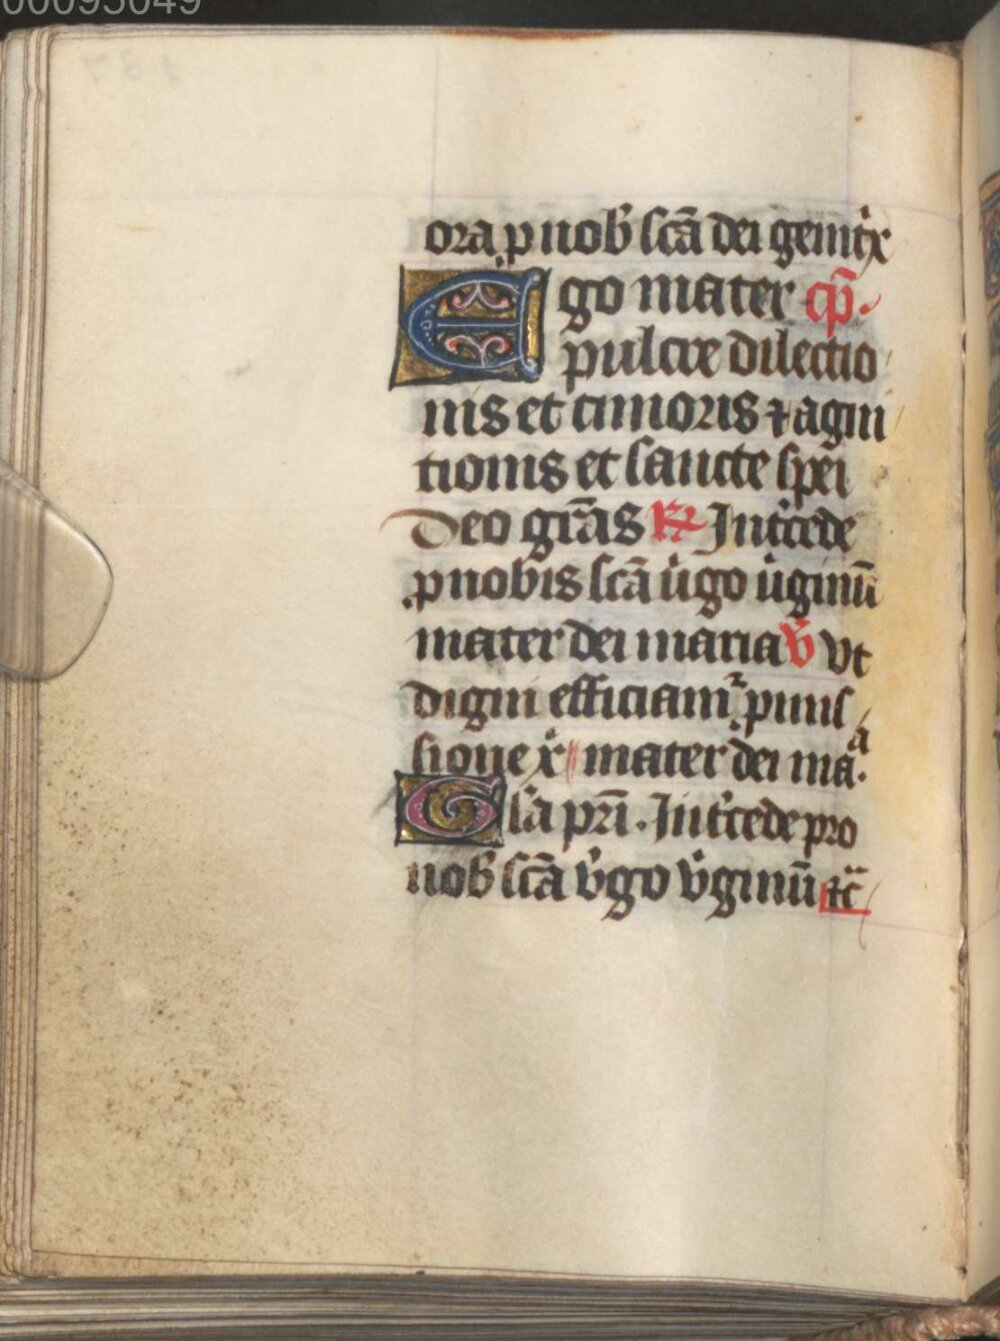 00095049
ora p nob' scā dei genit'x
Ego mater cp̄.
pulcre dilectio
nis et timoris ⁊ agni
tionis et sancte spei
Deo grās ℟ Int'cede
p nobis scā u'go u'ginū
mater dei maria v̄ vt
digni efficiam² p unis
sione x̄ mater dei mᵃa.
Gl'a pr̄i. Int'cede pro
nob' scā v'go v'ginū ⁊c̄